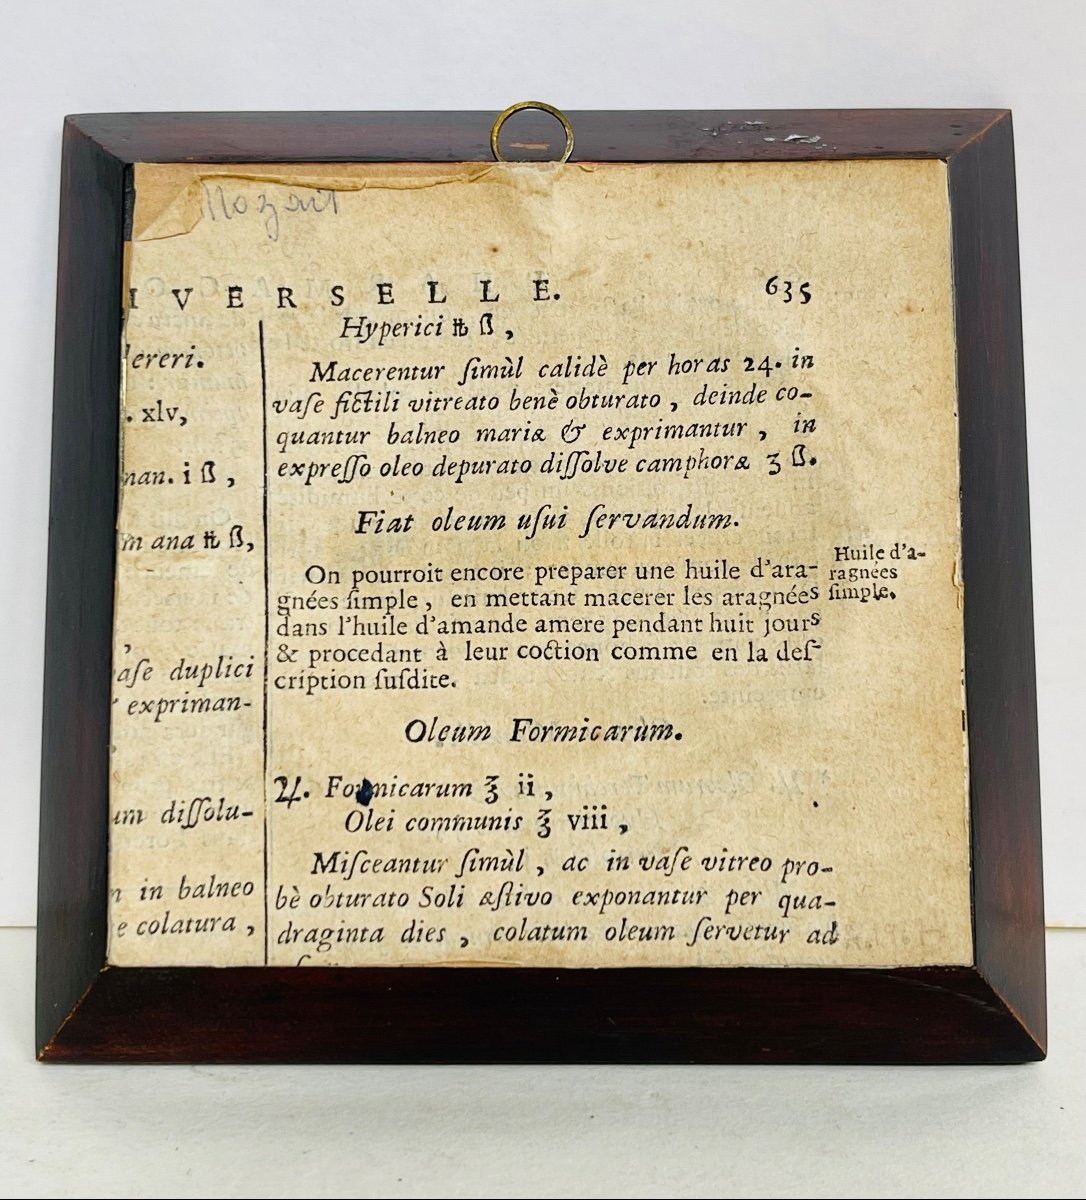 Mozart
IVERSELLE. 635
lereri.
. xlv,
nan. i ß,
m ana ℔ ß,
,
aſe duplici
expriman-
um diſſolu-
n in balneo
e colatura,
Hyperici ℔ ß,
Macerentur ſimùl calidè per horas 24. in
vaſe fictili vitreato benè obturato, deinde co-
quantur balneo mariæ & exprimantur, in
expreſſo oleo depurato diſſolve camphoræ ʒ ß.
Fiat oleum uſui ſervandum.
On pourroit encore preparer une huile d'ara-
gnées ſimple, en mettant macerer les aragnées
dans l'huile d'amande amere pendant huit jours
& procedant à leur coction comme en la deſ-
cription ſuſdite.
Huile d'a-
ragnées
ſimple.
Oleum Formicarum.
♃. Formicarum ℥ ii,
Olei communis ℥ viii,
Miſceantur ſimùl, ac in vaſe vitreo pro-
bè obturato Soli æſtivo exponantur per qua-
draginta dies, colatum oleum ſervetur ad